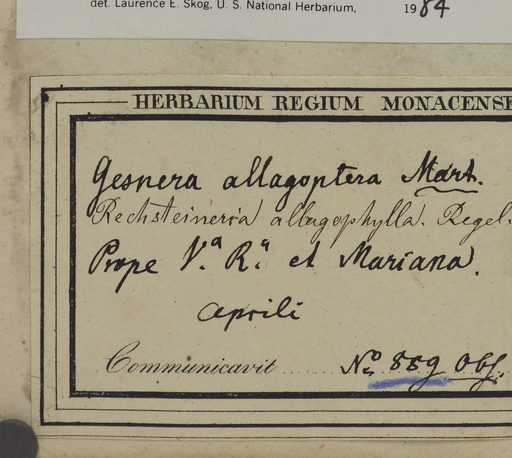 det. Laurence E. Skog, U. S. National Herbarium, 1984
HERBARIUM REGIUM MONACENSE
Gesnera allagoptera Mart.
Rechsteineria allagophylla. Regel.
Prope V.ª R.ª et Mariana.
Aprili
Communicavit ...... No. 889 Obs.